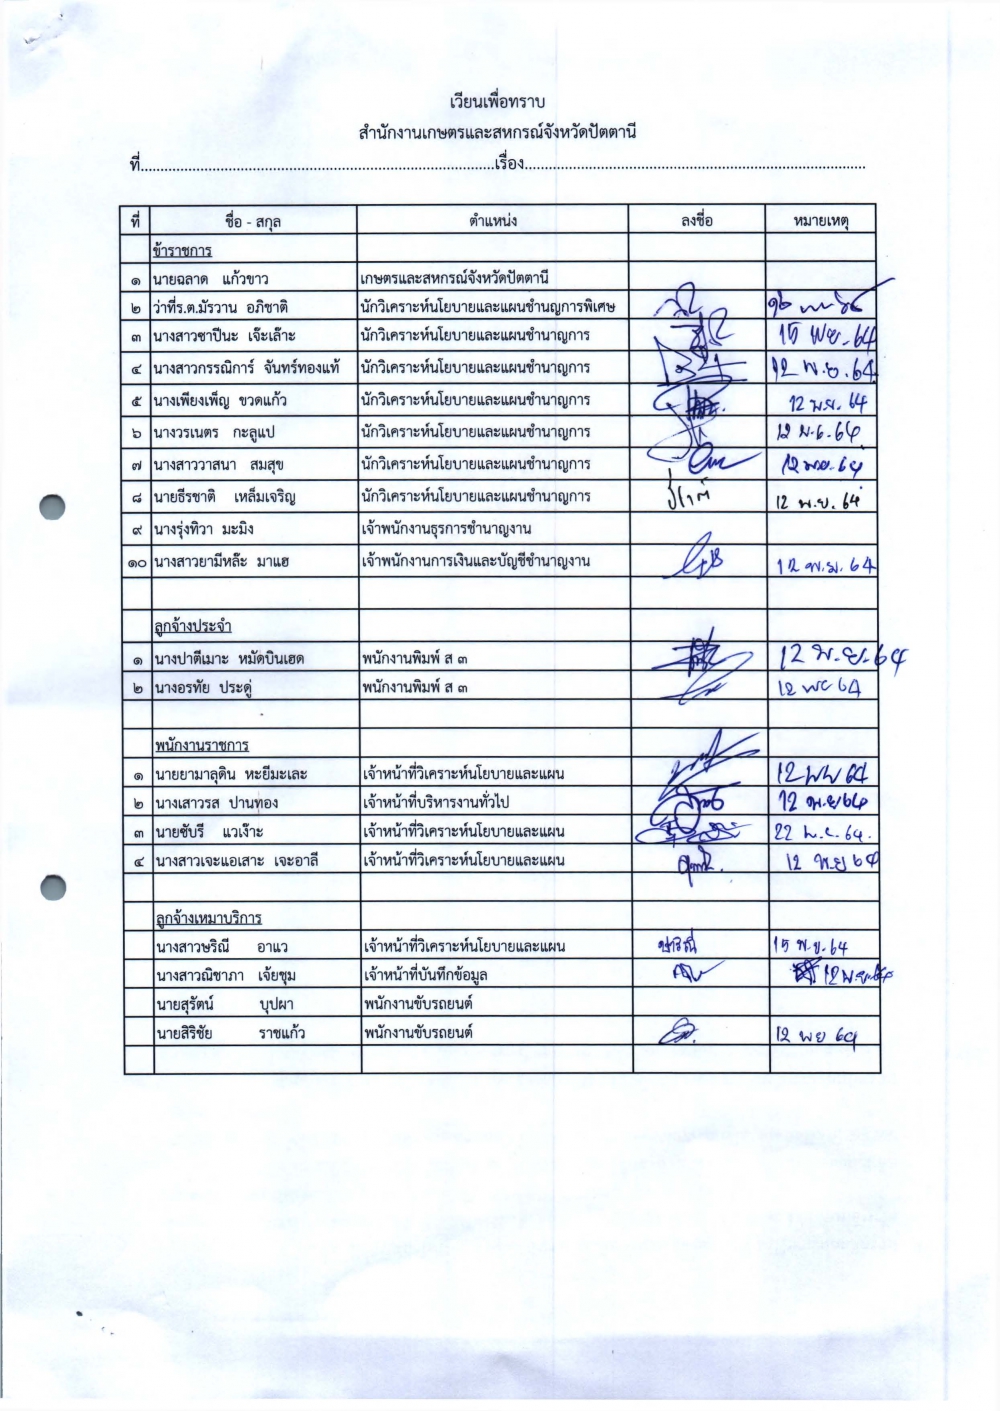 เวียนเพื่อทราบ
สำนักงานเกษตรและสหกรณ์จังหวัดปัตตานี
ที่..........เรื่อง..........
ที่ ชื่อ - สกุล ตำแหน่ง ลงชื่อ หมายเหตุ
ข้าราชการ
๑ นายฉลาด แก้วขาว เกษตรและสหกรณ์จังหวัดปัตตานี
๒ ว่าที่ร.ต.มัรวาน อภิชาติ นักวิเคราะห์นโยบายและแผนชำนญการพิเศษ
๓ นางสาวซาปีนะ เจ๊ะเล๊าะ นักวิเคราะห์นโยบายและแผนชำนาญการ 15 พ.ย. 64
๔ นางสาวกรรณิการ์ จันทร์ทองแท้ นักวิเคราะห์นโยบายและแผนชำนาญการ 12 พ.ย. 64
๕ นางเพียงเพ็ญ ขวดแก้ว นักวิเคราะห์นโยบายและแผนชำนาญการ 12 พ.ย. 64
๖ นางวรเนตร กะลูแป นักวิเคราะห์นโยบายและแผนชำนาญการ 12 พ.ย. 64
๗ นางสาววาสนา สมสุข นักวิเคราะห์นโยบายและแผนชำนาญการ 12 พย. 64
๘ นายธีรชาติ เหล็มเจริญ นักวิเคราะห์นโยบายและแผนชำนาญการ 12 พ.ย. 64
๙ นางรุ่งทิวา มะมิง เจ้าพนักงานธุรการชำนาญงาน
๑๐ นางสาวยามีหล๊ะ มาแฮ เจ้าพนักงานการเงินและบัญชีชำนาญงาน 12 พ.ย. 64
ลูกจ้างประจำ
๑ นางปาตีเมาะ หมัดบินเฮด พนักงานพิมพ์ ส ๓ 12 พ.ย. 64
๒ นางอรทัย ประดู่ พนักงานพิมพ์ ส ๓ 12 พย 64
พนักงานราชการ
๑ นายยามาลุดิน หะยีมะเละ เจ้าหน้าที่วิเคราะห์นโยบายและแผน 12 พย 64
๒ นางเสาวรส ปานทอง เจ้าหน้าที่บริหารงานทั่วไป 12 พ.ย 64
๓ นายซับรี แวเง๊าะ เจ้าหน้าที่วิเคราะห์นโยบายและแผน 22 พ.ย. 64.
๔ นางสาวเจะแอเสาะ เจะอาลี เจ้าหน้าที่วิเคราะห์นโยบายและแผน 12 พ.ย 64
ลูกจ้างเหมาบริการ
นางสาวษริณี อาแว เจ้าหน้าที่วิเคราะห์นโยบายและแผน ษาริณี 15 พ.ย. 64
นางสาวณิชาภา เจ้ยชุม เจ้าหน้าที่บันทึกข้อมูล 12 พ.ย. 64
นายสุรัตน์ บุปผา พนักงานขับรถยนต์
นายสิริชัย ราชแก้ว พนักงานขับรถยนต์ 12 พย 64